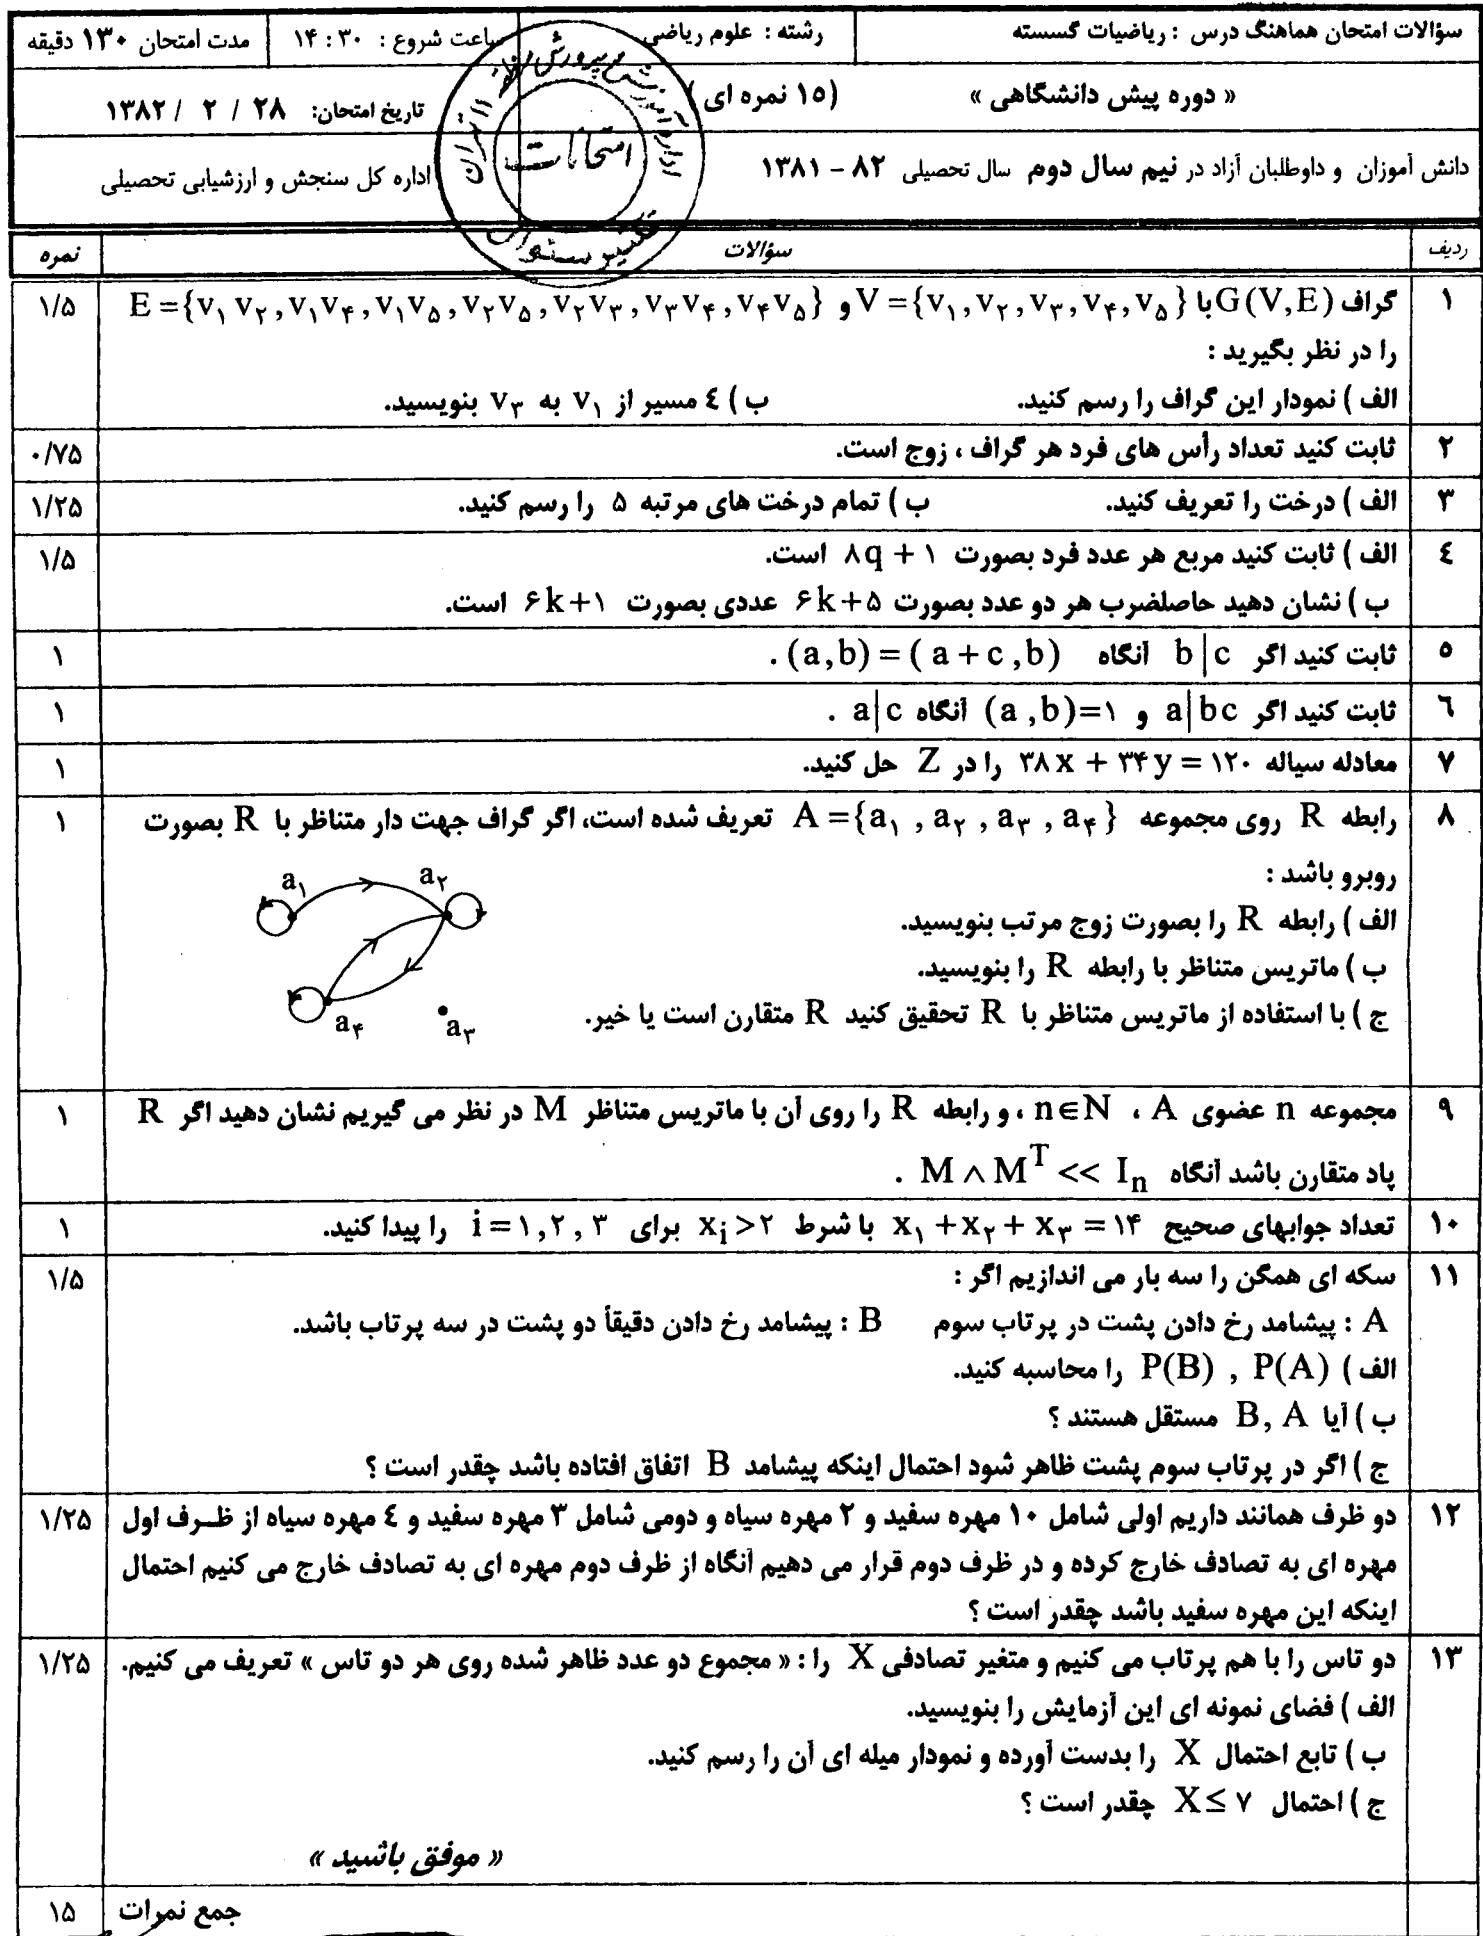 سؤالات امتحان هماهنگ درس : ریاضیات گسسته رشته : علوم ریاضی ساعت شروع : ۱۴:۳۰ مدت امتحان ۱۳۰ دقیقه
« دوره پیش دانشگاهی » (۱۵ نمره ای) تاریخ امتحان: ۲۸ / ۲ / ۱۳۸۲
دانش آموزان و داوطلبان آزاد در نیم سال دوم سال تحصیلی ۸۲ - ۱۳۸۱ اداره کل سنجش و ارزشیابی تحصیلی
امتحانات
ردیف سؤالات نمره
۱ گراف G(V,E) با V={v₁,v₂,v₃,v₄,v₅} و E={v₁v₂,v₁v₄,v₁v₅,v₂v₅,v₂v₃,v₃v₄,v₄v₅} ۱/۵
را در نظر بگیرید :
الف ) نمودار این گراف را رسم کنید. ب ) ٤ مسیر از v₁ به v₃ بنویسید.
۲ ثابت کنید تعداد رأس های فرد هر گراف ، زوج است. ۰/۷۵
۳ الف ) درخت را تعریف کنید. ب ) تمام درخت های مرتبه ۵ را رسم کنید. ۱/۲۵
٤ الف ) ثابت کنید مربع هر عدد فرد بصورت ۸q + ۱ است. ۱/۵
ب ) نشان دهید حاصلضرب هر دو عدد بصورت ۶k+۵ عددی بصورت ۶k+۱ است.
۵ ثابت کنید اگر b|c آنگاه (a,b) = (a+c,b) . ۱
٦ ثابت کنید اگر a|bc و (a,b)=۱ آنگاه a|c . ۱
۷ معادله سیاله ۳۸x + ۳۴y = ۱۲۰ را در Z حل کنید. ۱
۸ رابطه R روی مجموعه A={a₁ , a₂ , a₃ , a₄} تعریف شده است، اگر گراف جهت دار متناظر با R بصورت ۱
روبرو باشد :
الف ) رابطه R را بصورت زوج مرتب بنویسید.
ب ) ماتریس متناظر با رابطه R را بنویسید.
ج ) با استفاده از ماتریس متناظر با R تحقیق کنید R متقارن است یا خیر.
a₁ a₂
a₄ a₃
۹ مجموعه n عضوی A ، n∈N ، و رابطه R را روی آن با ماتریس متناظر M در نظر می گیریم نشان دهید اگر R ۱
پاد متقارن باشد آنگاه M ∧ Mᵀ << Iₙ .
۱۰ تعداد جوابهای صحیح x₁+x₂+x₃=۱۴ با شرط xᵢ>۲ برای i=۱,۲,۳ را پیدا کنید. ۱
۱۱ سکه ای همگن را سه بار می اندازیم اگر : ۱/۵
A : پیشامد رخ دادن پشت در پرتاب سوم B : پیشامد رخ دادن دقیقاً دو پشت در سه پرتاب باشد.
الف ) P(B) , P(A) را محاسبه کنید.
ب ) آیا B, A مستقل هستند ؟
ج ) اگر در پرتاب سوم پشت ظاهر شود احتمال اینکه پیشامد B اتفاق افتاده باشد چقدر است ؟
۱۲ دو ظرف همانند داریم اولی شامل ۱۰ مهره سفید و ۲ مهره سیاه و دومی شامل ۳ مهره سفید و ٤ مهره سیاه از ظرف اول ۱/۲۵
مهره ای به تصادف خارج کرده و در ظرف دوم قرار می دهیم آنگاه از ظرف دوم مهره ای به تصادف خارج می کنیم احتمال
اینکه این مهره سفید باشد چقدر است ؟
۱۳ دو تاس را با هم پرتاب می کنیم و متغیر تصادفی X را : « مجموع دو عدد ظاهر شده روی هر دو تاس » تعریف می کنیم. ۱/۲۵
الف ) فضای نمونه ای این آزمایش را بنویسید.
ب ) تابع احتمال X را بدست آورده و نمودار میله ای آن را رسم کنید.
ج ) احتمال X≤۷ چقدر است ؟
« موفق باشید »
جمع نمرات ۱۵